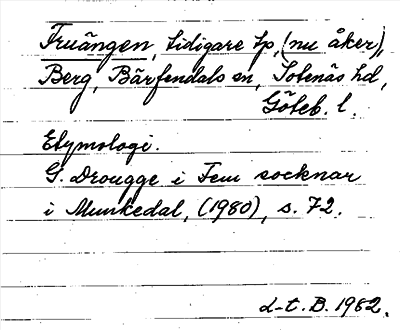 Fruängen, tidigare tp, (nu åker),
Berg, Bärfendals sn, Sotenäs hd,
Göteb. l.
Etymologi.
G. Drougge i Fem socknar
i Munkedal, (1980), s. 72.
d-t. B. 1982.